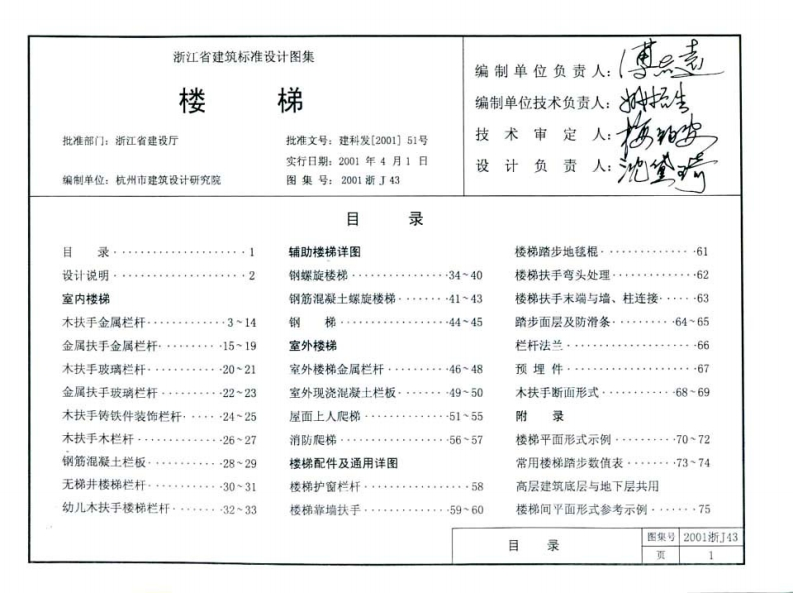 浙江省建筑标准设计图集
楼 梯
批准部门：浙江省建设厅
批准文号：建科发[2001] 51号
实行日期：2001 年 4 月 1 日
编制单位：杭州市建筑设计研究院
图 集 号：2001浙J43
编制单位负责人：
编制单位技术负责人：
技 术 审 定 人：
设 计 负 责 人：
目 录
目 录 1
设计说明 2
室内楼梯
木扶手金属栏杆 3~14
金属扶手金属栏杆 15~19
木扶手玻璃栏杆 20~21
金属扶手玻璃栏杆 22~23
木扶手铸铁件装饰栏杆 24~25
木扶手木栏杆 26~27
钢筋混凝土栏板 28~29
无梯井楼梯栏杆 30~31
幼儿木扶手楼梯栏杆 32~33
辅助楼梯详图
钢螺旋楼梯 34~40
钢筋混凝土螺旋楼梯 41~43
钢 梯 44~45
室外楼梯
室外楼梯金属栏杆 46~48
室外现浇混凝土栏板 49~50
屋面上人爬梯 51~55
消防爬梯 56~57
楼梯配件及通用详图
楼梯护窗栏杆 58
楼梯靠墙扶手 59~60
楼梯踏步地毯棍 61
楼梯扶手弯头处理 62
楼梯扶手末端与墙、柱连接 63
踏步面层及防滑条 64~65
栏杆法兰 66
预 埋 件 67
木扶手断面形式 68~69
附 录
楼梯平面形式示例 70~72
常用楼梯踏步数值表 73~74
高层建筑底层与地下层共用
楼梯间平面形式参考示例 75
目 录
图集号 2001浙J43
页 1